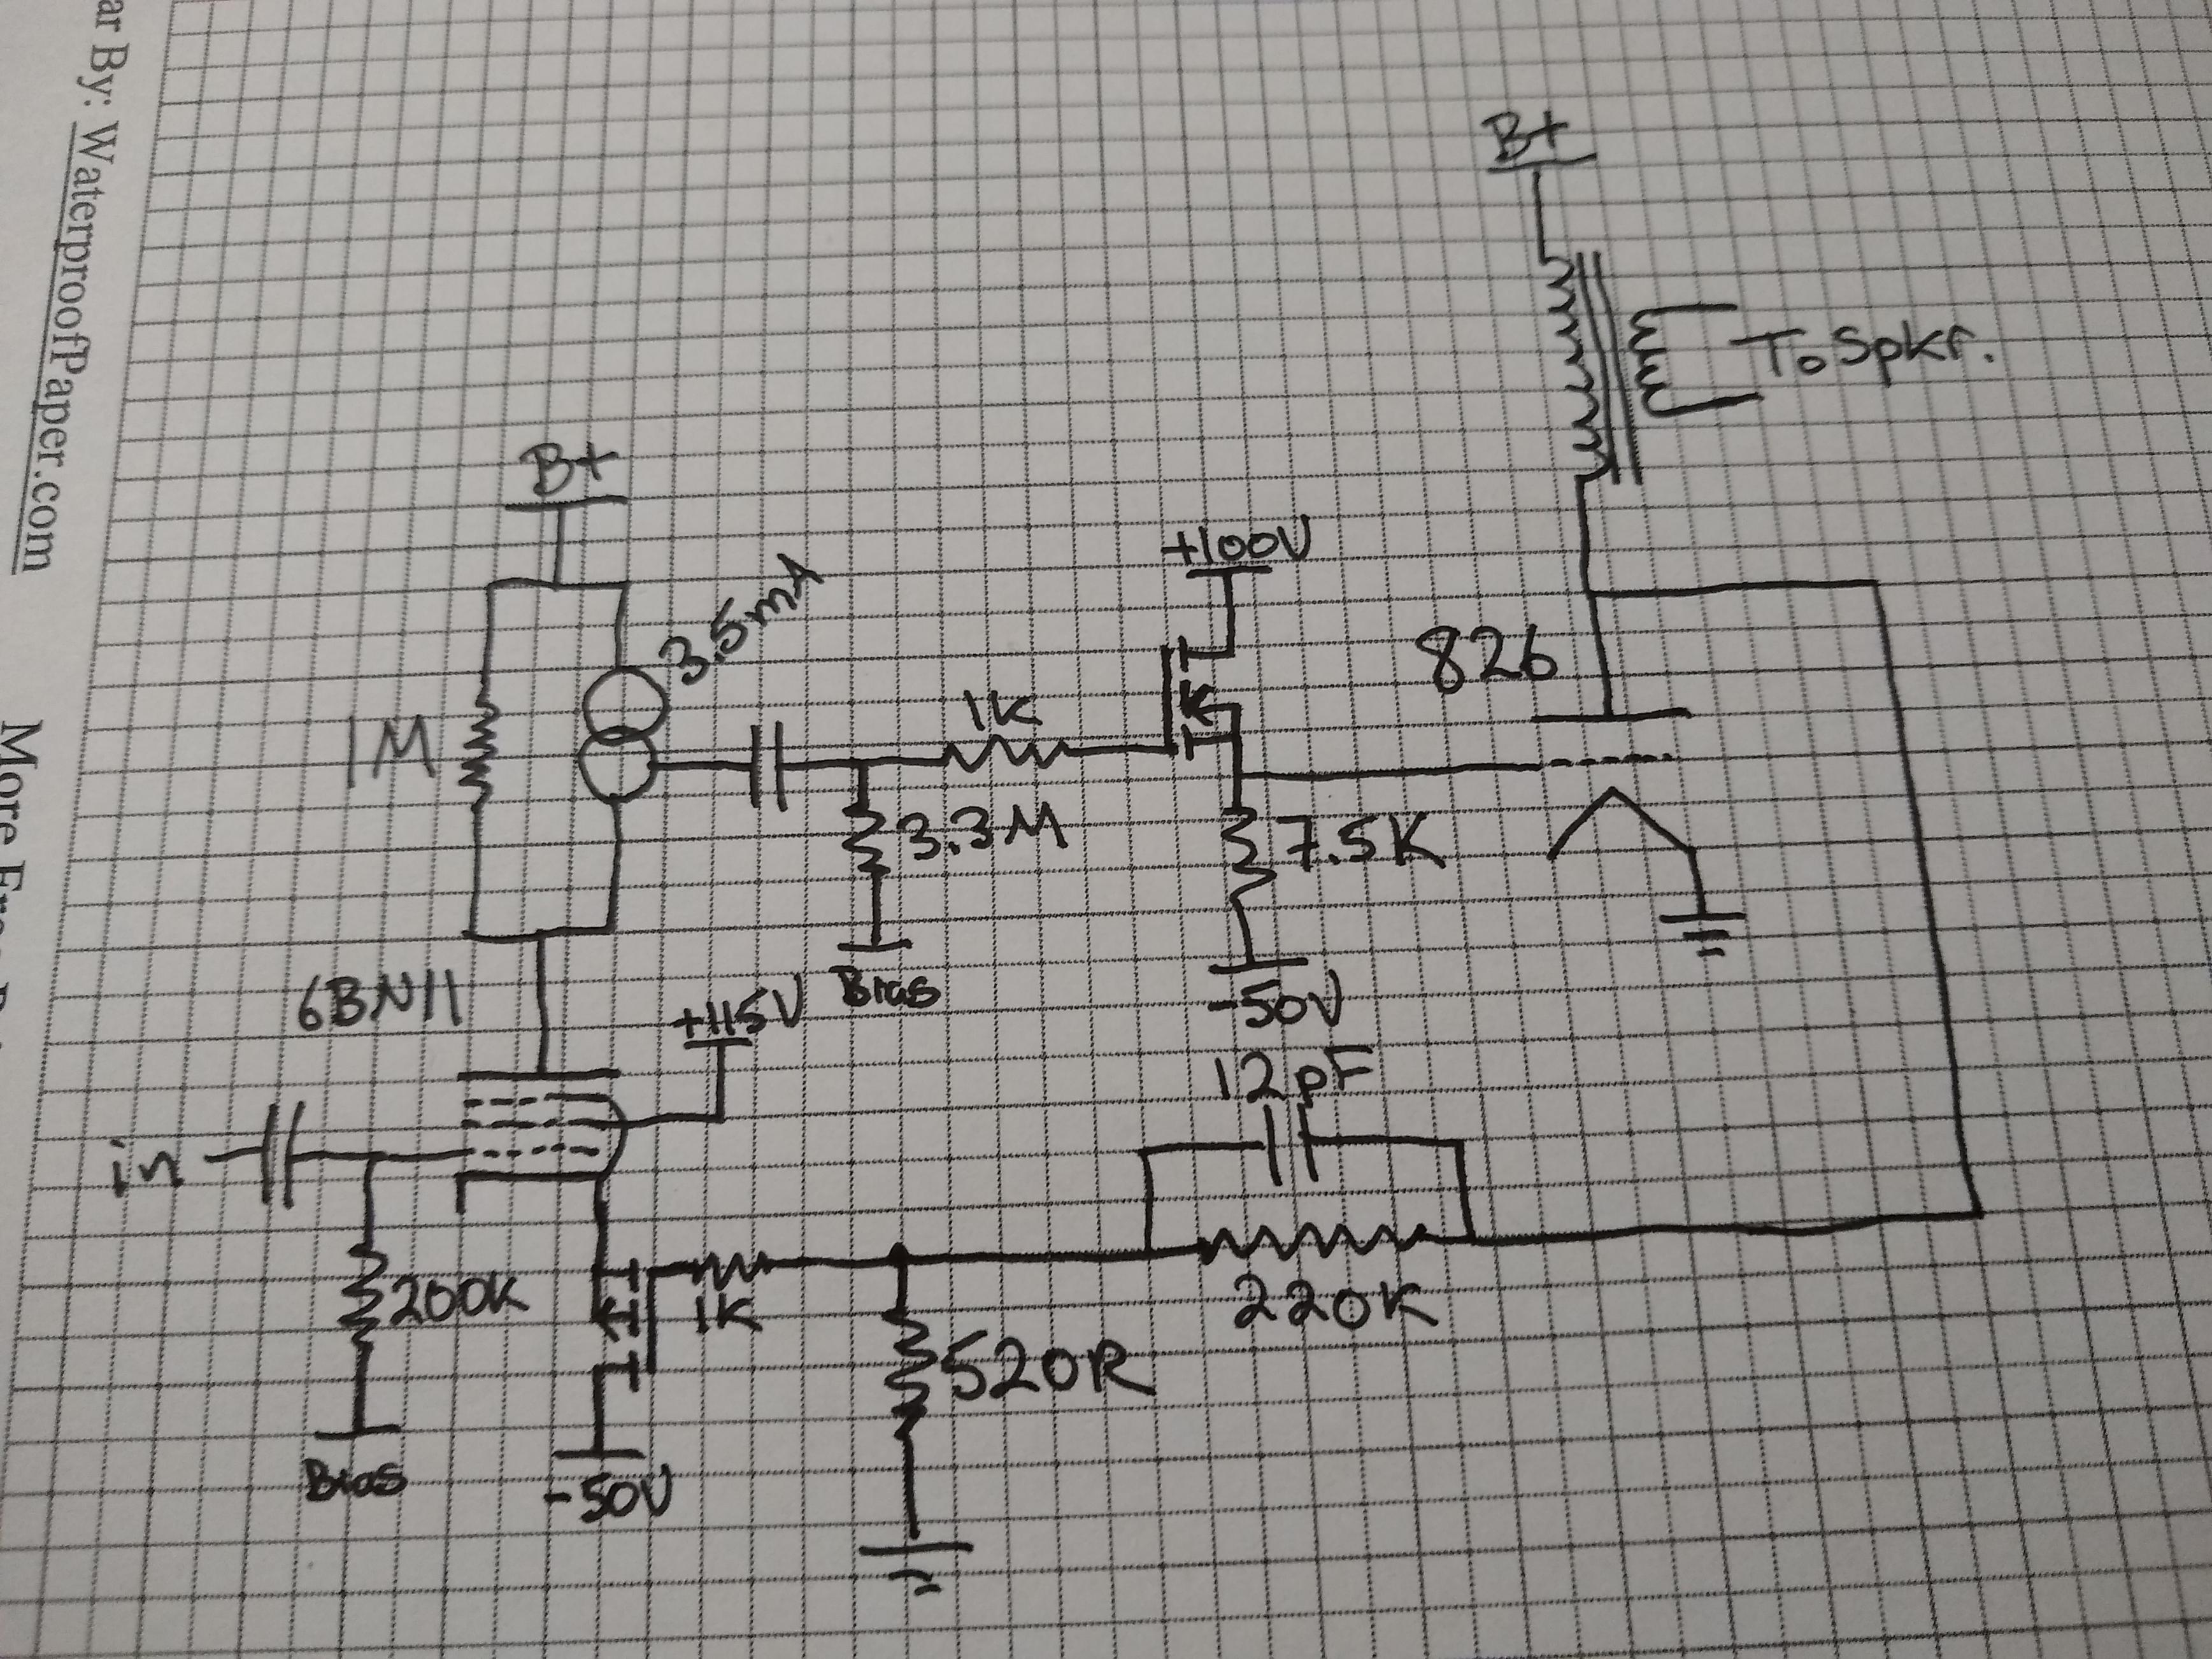 ar By: WaterproofPaper.com
More Free
B+
To Spkr.
B+
3.5mA
+100V
826
1M
1K
3.3M
7.5K
Bias
-50V
6BN11
+115V
12pF
in
200K
1K
220K
520R
Bias
-50V